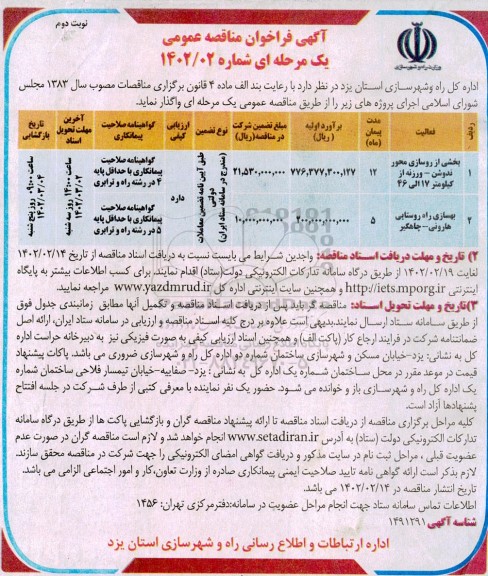 نوبت دوم
آگهی فراخوان مناقصه عمومی
یک مرحله ای شماره ۱۴۰۲/۰۲
وزارت راه و شهرسازی
اداره کل راه وشهرسازی استان یزد در نظر دارد با رعایت بند الف ماده ۴ قانون برگزاری مناقصات مصوب سال ۱۳۸۳ مجلس
شورای اسلامی اجرای پروژه های زیر را از طریق مناقصه عمومی یک مرحله ای واگذار نماید.
ردیف
فعالیت
مدت پیمان (ماه)
برآورد اولیه (ریال)
مبلغ تضمین شرکت در مناقصه(ریال)
نوع تضمین
ارزیابی کیفی
گواهینامه صلاحیت پیمانکاری
آخرین مهلت تحویل اسناد
تاریخ بازگشایی
۱
بخشی از روسازی محور ندوشن – ورزنه از کیلومتر ۱۷ الی ۴۶
۱۲
۷۷۶,۳۷۷,۳۰۰,۱۲۷
۲۱,۵۳۰,۰۰۰,۰۰۰
طبق آیین نامه تضمین معاملات دولتی (مندرج در سامانه ستاد ایران)
دارد
گواهینامه صلاحیت پیمانکاری با حداقل پایه ۴ در رشته راه و ترابری
ساعت ۱۴:۰۰ روز سه شنبه ۱۴۰۲/۰۳/۰۲
ساعت ۰۹:۰۰ روز پنج شنبه ۱۴۰۲/۰۳/۰۴
۲
بهسازی راه روستایی هارونی–چاهگیر
۵
۲۰۰,۰۰۰,۰۰۰,۰۰۰
۱۰,۰۰۰,۰۰۰,۰۰۰
گواهینامه صلاحیت پیمانکاری با حداقل پایه ۵ در رشته راه و ترابری
۲) تاریخ و مهلت دریافت اسناد مناقصه: واجدین شرایط می بایست نسبت به دریافت اسناد مناقصه از تاریخ ۱۴۰۲/۰۲/۱۴
لغایت ۱۴۰۲/۰۲/۱۹ از طریق درگاه سامانه تدارکات الکترونیکی دولت(ستاد) اقدام نمایند. برای کسب اطلاعات بیشتر به پایگاه
اینترنتی http://iets.mporg.ir و همچنین سایت اینترنتی اداره کل www.yazdmrud.ir مراجعه نمایید.
۳)تاریخ و مهلت تحویل اسناد: مناقصه گر باید پس از دریافت اسناد مناقصه و تکمیل آنها مطابق زمانبندی جدول فوق
از طریق سامانه ستاد ارسال نمایند.بدیهی است علاوه بر درج کلیه اسناد مناقصه و ارزیابی در سامانه ستاد ایران، ارائه اصل
ضمانتنامه شرکت در فرایند ارجاع کار (پاکت الف) و همچنین اسناد ارزیابی کیفی به صورت فیزیکی نیز به دبیرخانه حراست اداره
کل به نشانی: یزد–خیابان مسکن و شهرسازی ساختمان شماره دو اداره کل راه و شهرسازی ضروری می باشد. پاکات پیشنهاد
قیمت در موعد مقرر در محل ساختمان شماره یک اداره کل به نشانی : یزد– صفاییه–خیابان تیمسار فلاحی ساختمان شماره
یک اداره کل راه و شهرسازی باز و خوانده می شود. حضور یک نفر نماینده با معرفی کتبی از طرف شرکت در جلسه افتتاح
پیشنهادها آزاد است.
کلیه مراحل برگزاری مناقصه از دریافت اسناد مناقصه تا ارائه پیشنهاد مناقصه گران و بازگشایی پاکت ها از طریق درگاه سامانه
تدارکات الکترونیکی دولت (ستاد) به آدرس www.setadiran.ir انجام خواهد شد و لازم است مناقصه گران در صورت عدم
عضویت قبلی ، مراحل ثبت نام در سایت مذکور و دریافت گواهی امضای الکترونیکی را جهت شرکت در مناقصه محقق سازند.
لازم بذکر است ارائه گواهی نامه تایید صلاحیت ایمنی پیمانکاری صادره از وزارت تعاون،کار و امور اجتماعی الزامی می باشد.
تاریخ انتشار مناقصه در ۱۴۰۲/۰۲/۱۴ می باشد.
اطلاعات تماس سامانه ستاد جهت انجام مراحل عضویت در سامانه:دفترمرکزی تهران: ۱۴۵۶
شناسه آگهی ۱۴۹۱۲۹۱
اداره ارتباطات و اطلاع رسانی راه و شهرسازی استان یزد